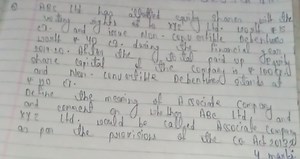 Q ABC Ltd. has allotted equity shares with the
voting rights of XYZ Ltd. worth ₹15
cr. and issue Non-Convertible Debentures
worth ₹40 cr. during the financial year
2019-20. After the total paid up Equity
share capital of the Company is ₹100cr
and Non-convertible Debentures stands at
₹
Define the meaning of Associate Company
and comment on whether ABC Ltd. and
XYZ Ltd. would be called Associate Company
as per the provisions of the Co. Act 2013?
4 marks